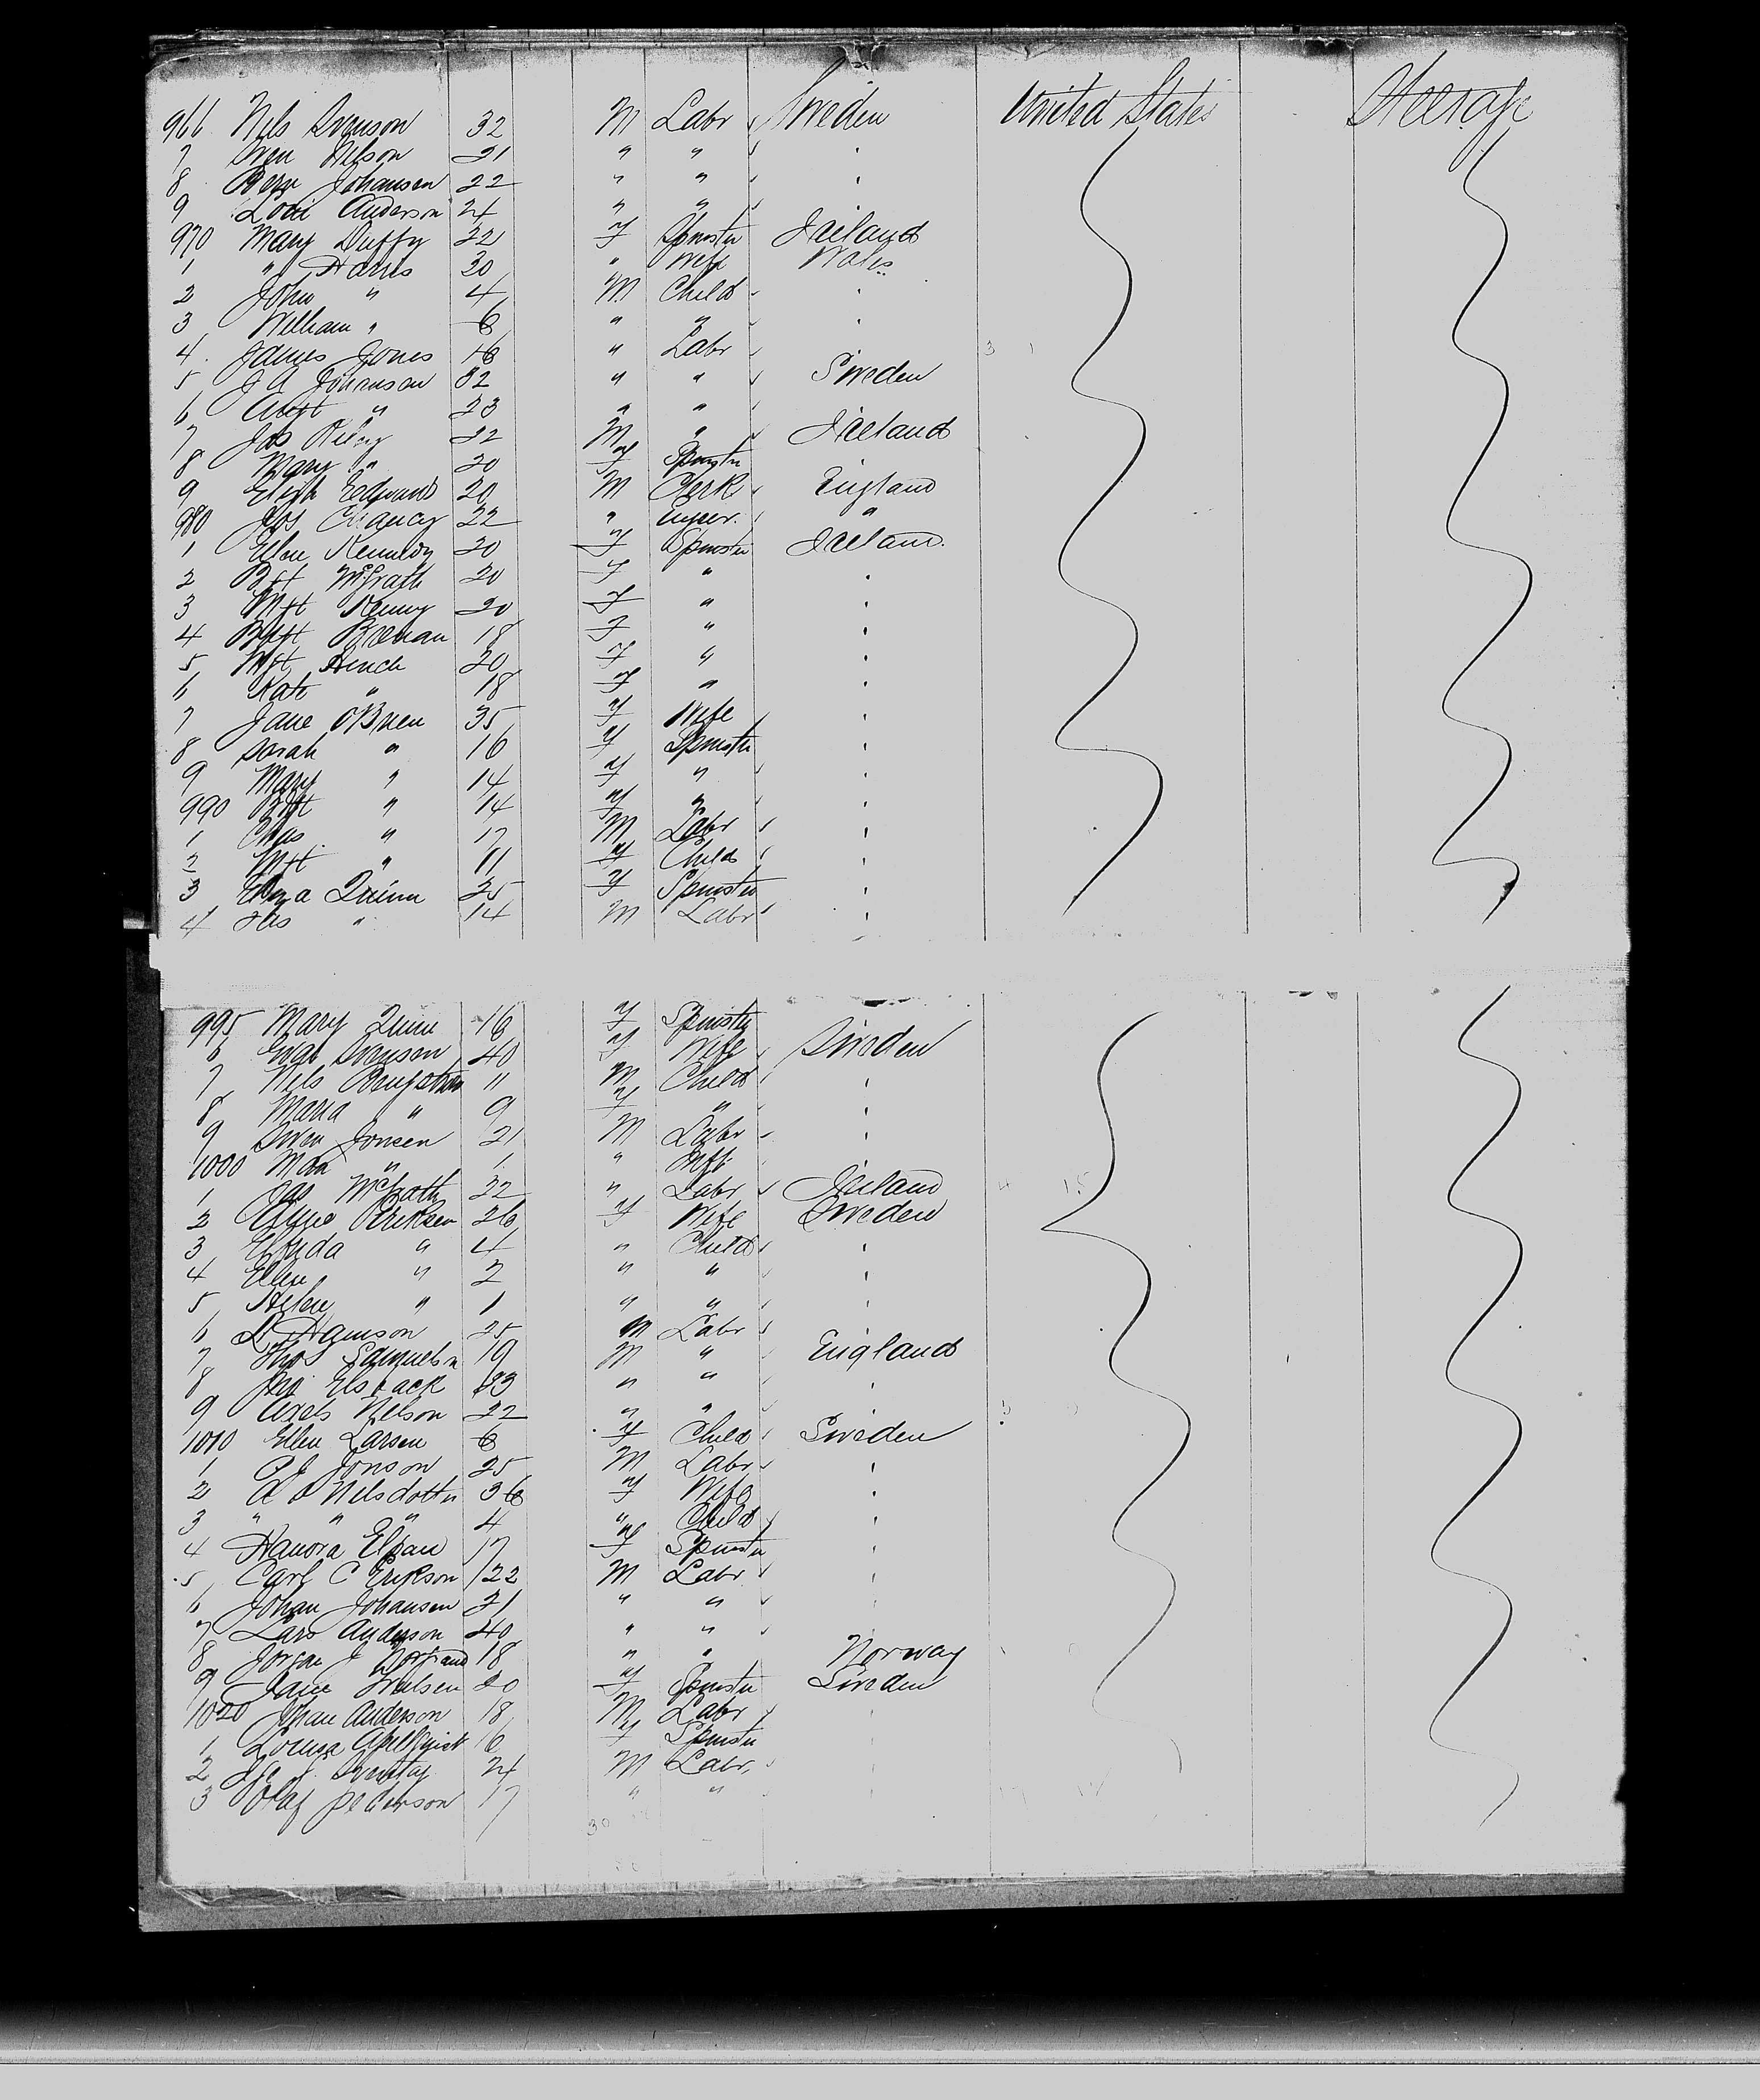 966 Nils Svenson 32 M Labr Sweden United States Steerage
7 Sven Nelson 21 " " "
8 Johansen 22 " " "
9 Anderson 24 " " "
970 Mary Duffy 22 F Spinster Ireland
1 " Harris 30 " Wife Wales
2 John " 4 M Child "
3 William " 6 " " "
4 James Jones 16 " Labr
5 J A Johanson 32 " " Sweden
6 " 23 " "
7 Jas Riley 22 M " Ireland
8 Mary " 20 F Spinster
9 Edwards 20 M Clerk England
980 Jos 22 " "
1 Ellen Kennedy 20 F Spinster Ireland
2 Bgt McGrath 20 F " "
3 Mgt Kenny 20 F " "
4 Bgt Brenan 18 F " "
5 Mgt 20 F " "
6 Kate " 18 F " "
7 Jane O'Brien 35 F Wife "
8 Sarah " 16 F Spinster "
9 Mary " 14 F " "
990 Bgt " 14 F " "
1 Chas " 17 M Labr "
2 Mgt " 11 F Child "
3 Eliza Quinn 25 F Spinster "
4 " 14 M Labr "
995 Mary Quinn 16 F Spinster
6 Svenson 40 F Wife Sweden
7 Nils 11 M Child "
8 Maria " 9 F " "
9 Sven Jonsen 21 M Labr "
1000 " 1 " Inft
1 Jas McGrath 22 " Labr Ireland
2 Eriksen 26 F Wife Sweden
3 " 4 " Child "
4 Ellen " 2 " " "
5 Helen " 1 " " "
6 25 M Labr "
7 Thos Samuelsn 19 M " England
8 33 " " "
9 Axels Nelson 22 " " "
1010 Ellen Larsen 6 F Child Sweden
1 Jonson 25 M Labr "
2 Nelsdotter 36 F Wife "
3 " " " 4 " Child "
4 Hanora 17 F Spinster "
5 Carl C Erikson 22 M Labr "
6 Johan Johansen 21 " " "
7 Lars Anderson 40 " "
8 18 " " Norway
9 20 F Spinster Sweden
1020 Johan Anderson 18 M Labr
1 Louisa 16 F Spinster
2 24 M Labr
3 Olaf Pederson 17 " "